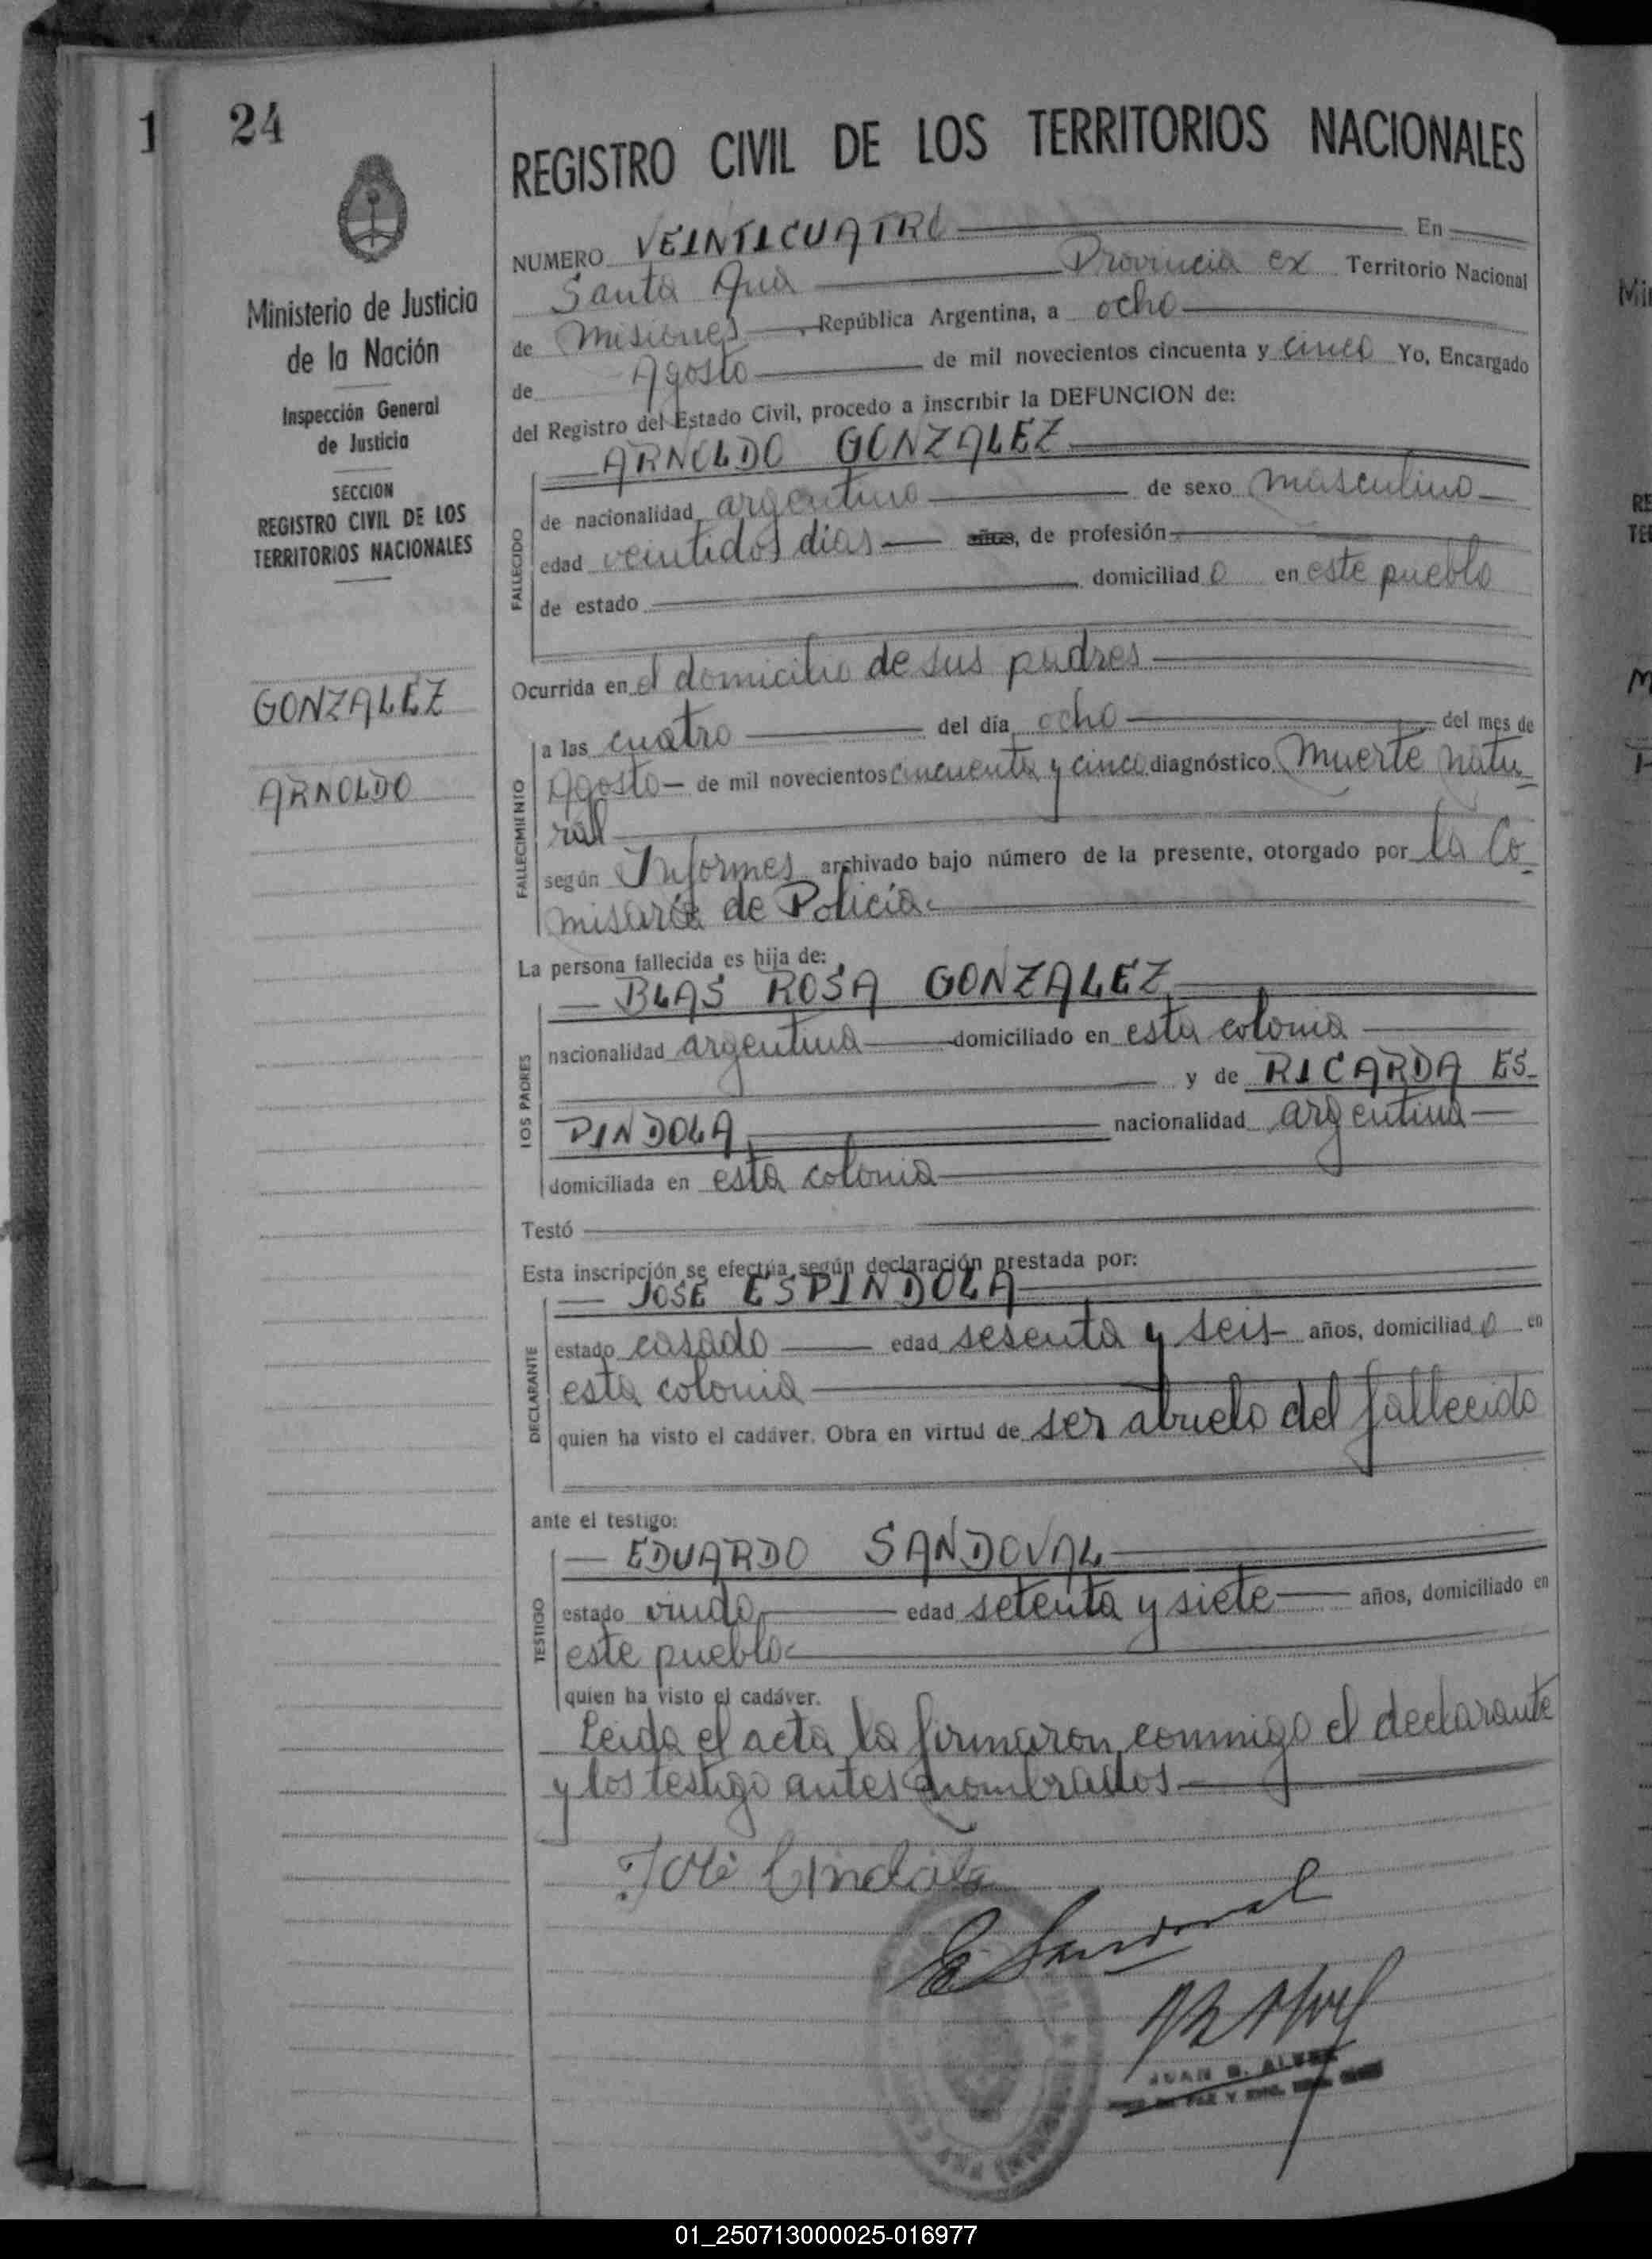 1 24
REGISTRO CIVIL DE LOS TERRITORIOS NACIONALES
Ministerio de Justicia
de la Nación
Inspección General
de Justicia
SECCION
REGISTRO CIVIL DE LOS
TERRITORIOS NACIONALES
GONZALEZ
ARNOLDO
NUMERO VEINTICUATRO En
Santa Ana Provincia ex Territorio Nacional
de Misiones, República Argentina, a ocho
de Agosto de mil novecientos cincuenta y cinco Yo, Encargado
del Registro del Estado Civil, procedo a inscribir la DEFUNCION de:
ARNOLDO GONZALEZ
FALLECIDO
de nacionalidad argentino de sexo masculino
edad veintidos dias años, de profesión
de estado domiciliado en este pueblo
Ocurrida en el domicilio de sus padres
FALLECIMIENTO
a las cuatro del día ocho del mes de
Agosto de mil novecientos cincuenta y cinco diagnóstico Muerte natu_
ral
según Informes archivado bajo número de la presente, otorgado por la Co_
misaría de Policía
La persona fallecida es hija de:
BLAS ROSA GONZALEZ
LOS PADRES
nacionalidad argentina domiciliado en esta colonia
y de RICARDA ES_
PINDOLA nacionalidad argentina
domiciliada en esta colonia
Testó
Esta inscripción se efectúa según declaración prestada por:
JOSE ESPINDOLA
DECLARANTE
estado casado edad sesenta y seis años, domiciliado en
esta colonia
quien ha visto el cadáver. Obra en virtud de ser abuelo del fallecido
ante el testigo:
EDUARDO SANDOVAL
TESTIGO
estado viudo edad setenta y siete años, domiciliado en
este pueblo
quien ha visto el cadáver.
Leida el acta la firmaron conmigo el declarante
y los testigo antes nombrados
José
E Sandoval
JUAN B.
01_250713000025-016977